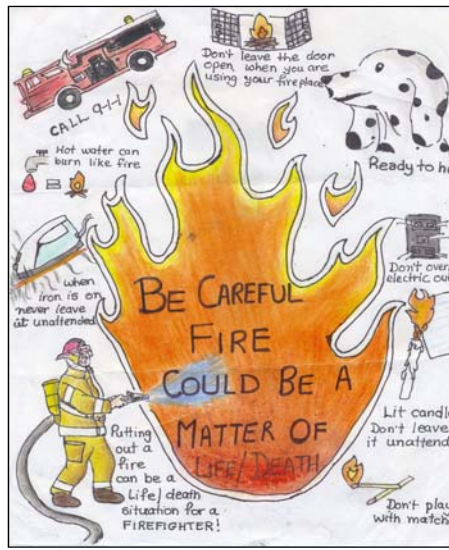 CALL 9-1-1
Don't leave the door
open, when you are
using your fireplace
Ready to
Hot water can
burn like fire
when
iron is on
never leave
it unattended
Don't
electric
BE CAREFUL
FIRE
COULD BE A
MATTER OF
LIFE/DEATH
Lit
Don't leave
it
Putting
out a
fire
can be a
Life/death
situation for a
FIREFIGHTER!
Don't
with